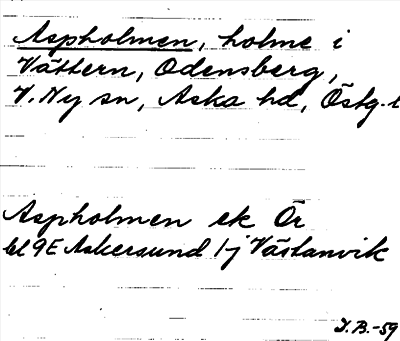 Aspholmen, holme i
Vättern, Odensberg,
V. Ny sn, Aska hd, Östg. l
Aspholmen ek Ör
bl 9E Askersund 1-j Västanvik
J.B.-59